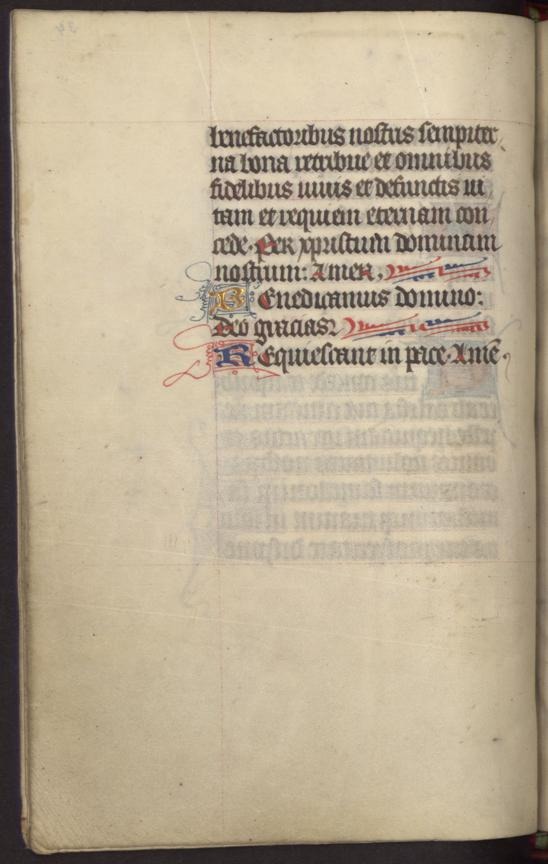 benefactoribus nostris sempiter
na bona retribue et omnibus
fidelibus uiuis et defunctis ui
tam et requiem eternam con
cede. Per xpristum dominum
nostrum: Amen,
Benedicamus domino:
Deo gracias
Requiescant in pace. Amē